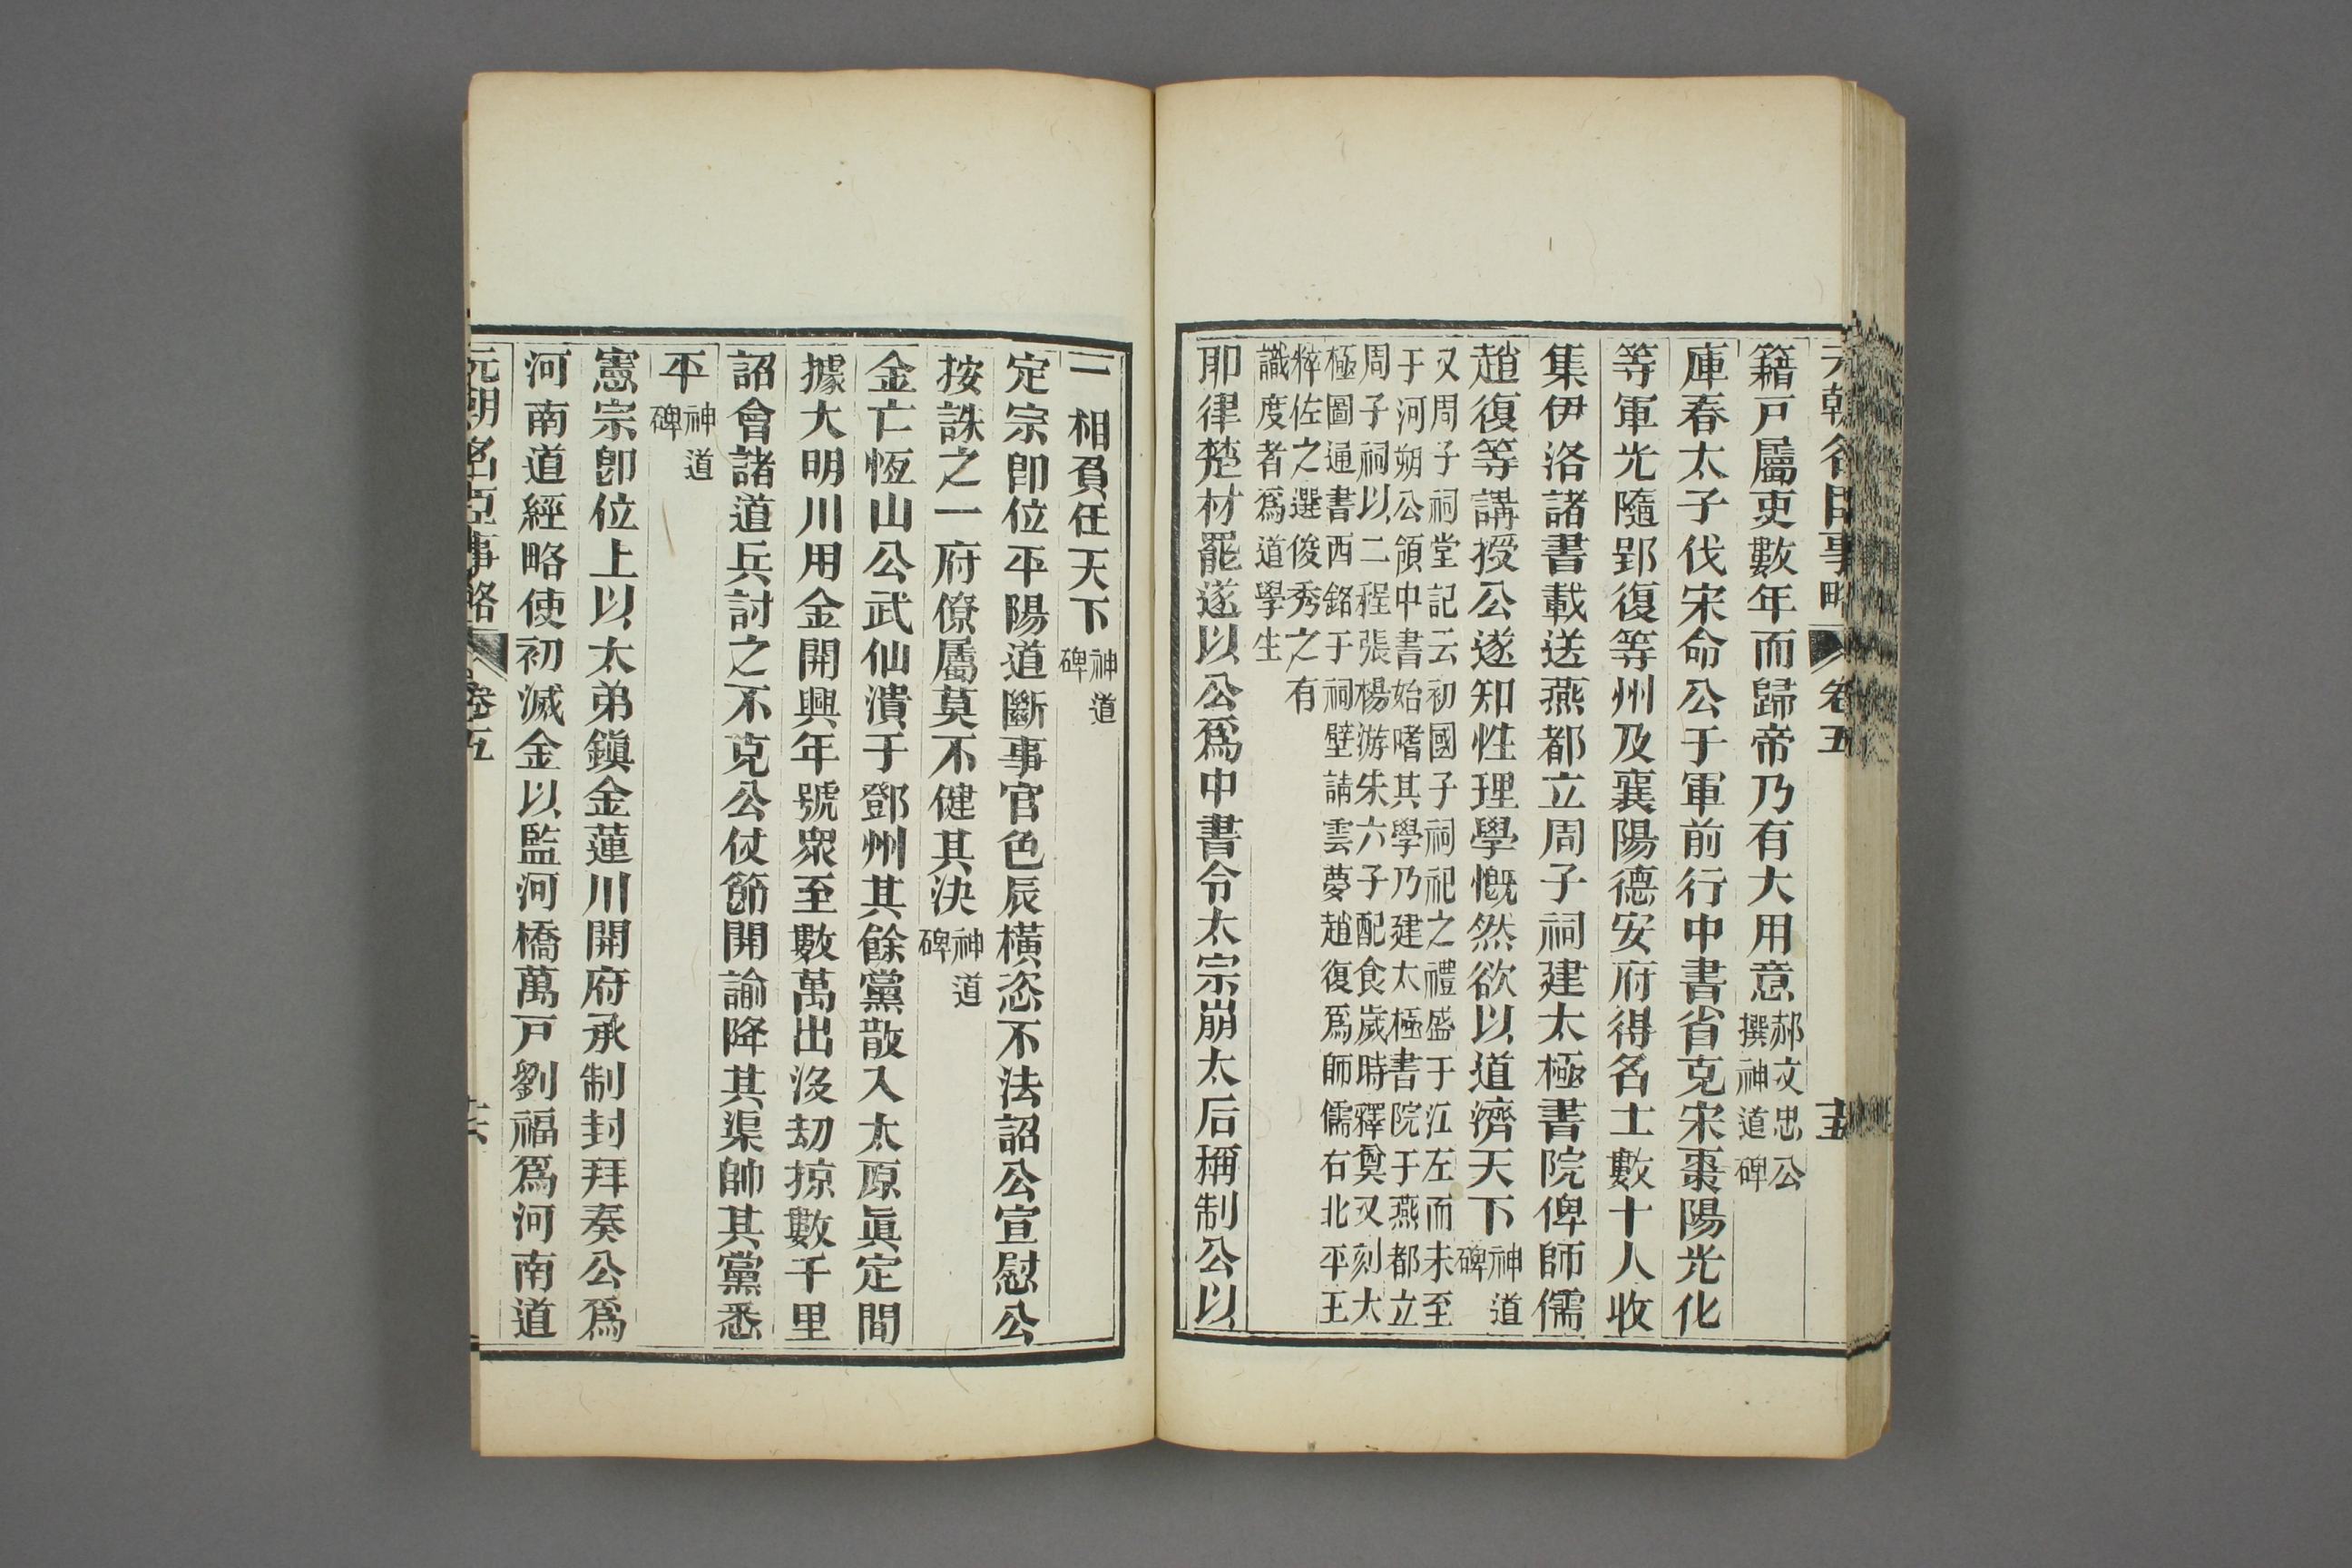 元朝名臣事略 卷五 十五
籍戸屬吏數年而歸帝乃有大用意郝文忠公
撰神道碑
庫春太子伐宋命公于軍前行中書省克宋棗陽光化
等軍光隨郢復等州及襄陽德安府得名士數十人收
集伊洛諸書載送燕都立周子祠建太極書院俾師儒
趙復等講授公遂知性理學慨然欲以道濟天下神道
碑
又周子祠堂記云初國子祠祀之禮盛于江左而未至
于河朔公領中書始嗜其學乃建太極書院于燕都立
周子祠以二程張楊游朱六子配食歲時釋奠又刻太
極圖通書西銘于祠壁請雲夢趙復爲師儒右北平王
粹佐之選俊秀之有
識度者爲道學生
耶律楚材罷遂以公爲中書令太宗崩太后稱制公以
一相負任天下神道
碑
定宗卽位平陽道斷事官色辰橫恣不法詔公宣慰公
按誅之一府僚屬莫不健其決神道
碑
金亡恆山公武仙潰于鄧州其餘黨散入太原眞定間
據大明川用金開興年號衆至數萬出沒刼掠數千里
詔會諸道兵討之不克公仗節開諭降其渠帥其黨悉
平神道
碑
憲宗卽位上以太弟鎭金蓮川開府承制封拜奏公爲
河南道經略使初滅金以監河橋萬戸劉福爲河南道
元朝名臣事略 卷五 十六